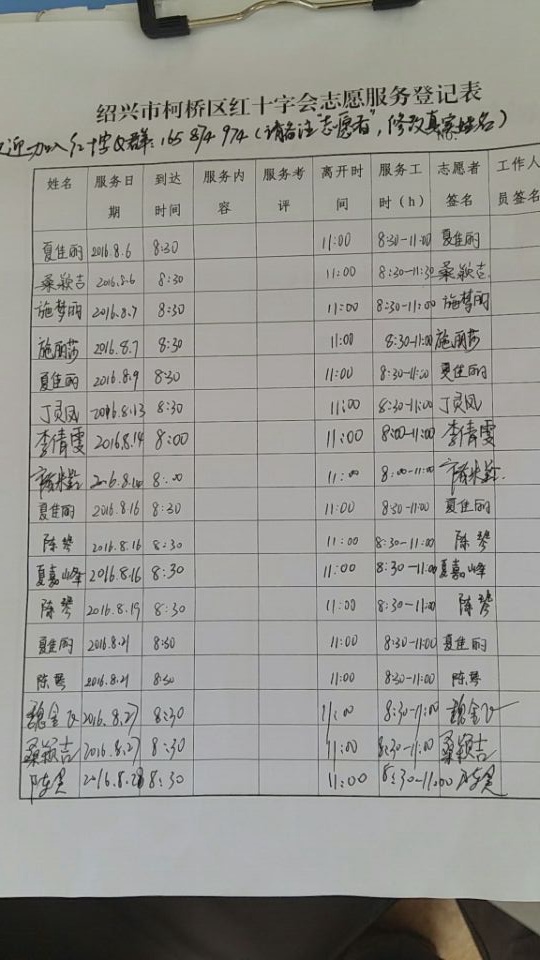 绍兴市柯桥区红十字会志愿服务登记表
迎加入红十字QQ群:165 874 974(请备注"志愿者",修改真实姓名)
姓名 服务日期 到达时间 服务内容 服务考评 离开时间 服务工时(h) 志愿者签名 工作人员签名
夏佳丽 2016.8.6 8:30 11:00 8:30-11:00 夏佳丽
桑颖吉 2016.8.6 8:30 11:00 8:30-11:30 桑颖吉
施梦丽 2016.8.7 8:30 11:00 8:30-11:00 施梦丽
施丽莎 2016.8.7 8:30 11:00 8:30-11:00 施丽莎
夏佳丽 2016.8.9 8:30 11:00 8:30-11:00 夏佳丽
丁灵凤 2016.8.13 8:30 11:00 8:30-11:00 丁灵凤
李倩雯 2016.8.14 8:00 11:00 8:00-11:00 李倩雯
8:00 11:00 8:00-11:00
夏佳丽 2016.8.16 8:30 11:00 8:30-11:00 夏佳丽
陈琴 2016.8.16 8:30 11:00 8:30-11:00 陈琴
夏嘉峰 2016.8.16 8:30 11:00 8:30-11:00 夏嘉峰
陈琴 2016.8.19 8:30 11:00 8:30-11:00 陈琴
夏佳丽 2016.8.21 8:30 11:00 8:30-11:00 夏佳丽
陈琴 2016.8.21 8:30 11:00 8:30-11:00 陈琴
魏金飞 2016.8.27 8:30 11:00 8:30-11:00 魏金飞
桑颖吉 2016.8.27 8:30 11:00 8:30-11:00 桑颖吉
2016.8.28 8:30 11:00 8:30-11:00